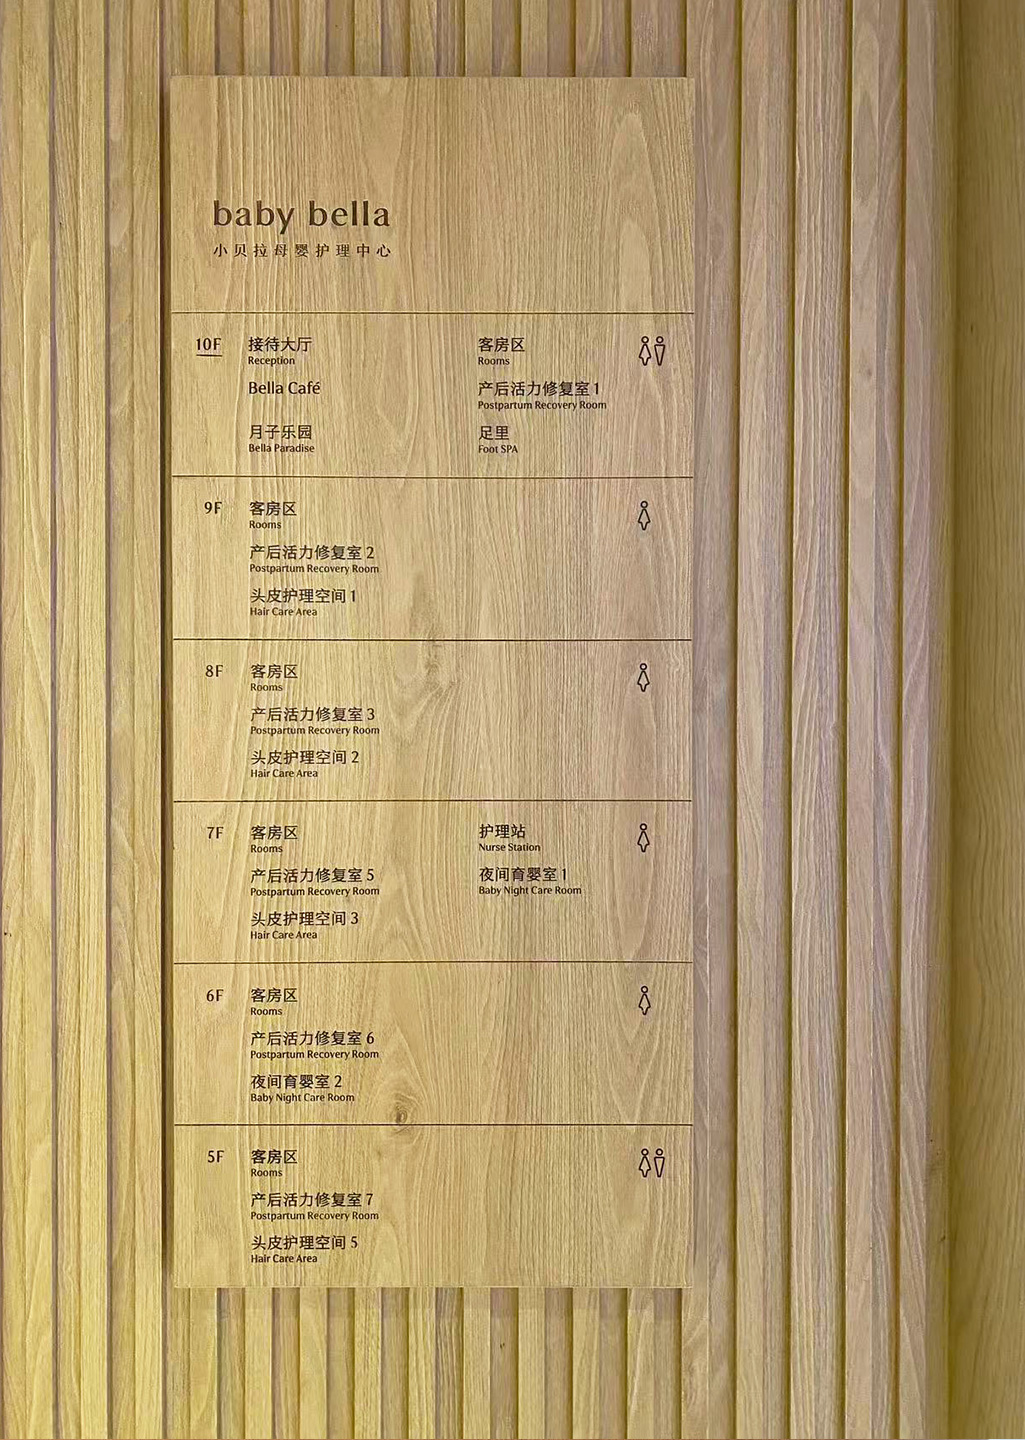 baby bella
小贝拉母婴护理中心
10F
接待大厅
Reception
Bella Café
月子乐园
Bella Paradise
客房区
Rooms
产后活力修复室 1
Postpartum Recovery Room
足里
Foot SPA
9F
客房区
Rooms
产后活力修复室 2
Postpartum Recovery Room
头皮护理空间 1
Hair Care Area
8F
客房区
Rooms
产后活力修复室 3
Postpartum Recovery Room
头皮护理空间 2
Hair Care Area
7F
客房区
Rooms
产后活力修复室 5
Postpartum Recovery Room
头皮护理空间 3
Hair Care Area
护理站
Nurse Station
夜间育婴室 1
Baby Night Care Room
6F
客房区
Rooms
产后活力修复室 6
Postpartum Recovery Room
夜间育婴室 2
Baby Night Care Room
5F
客房区
Rooms
产后活力修复室 7
Postpartum Recovery Room
头皮护理空间 5
Hair Care Area